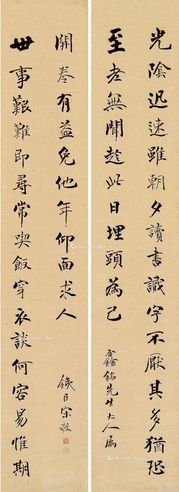 光陰迅速雖朝夕讀書識字不厭其多猶恐
至老無聞趁此日埋頭為己
先生大人屬
世事艱難即尋常喫飯穿衣談何容易惟期
開卷有益免他年仰面求人